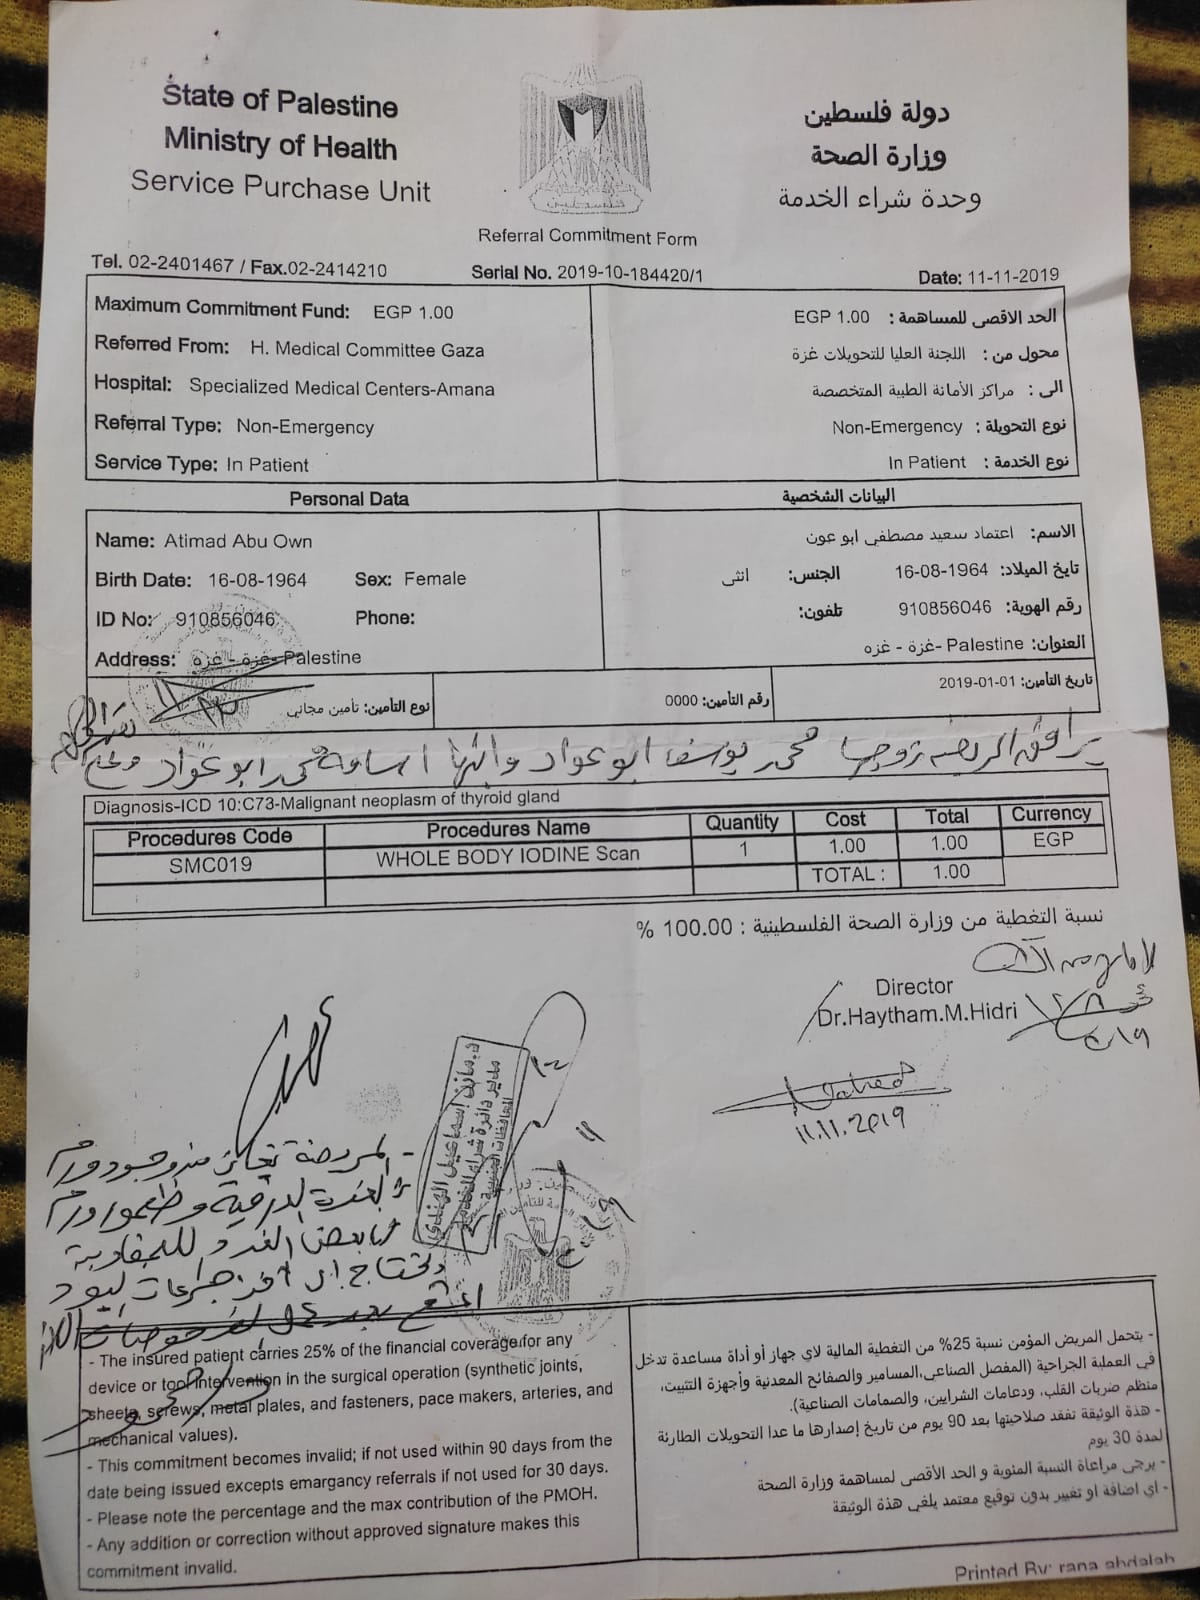 State of Palestine
Ministry of Health
Service Purchase Unit
دولة فلسطين
وزارة الصحة
وحدة شراء الخدمة
فلسطين
Referral Commitment Form
Tel. 02-2401467 / Fax.02-2414210
Serial No. 2019-10-184420/1
Date: 11-11-2019
Maximum Commitment Fund: EGP 1.00
الحد الاقصى للمساهمة : EGP 1.00
Referred From: H. Medical Committee Gaza
محول من : اللجنة العليا للتحويلات غزة
Hospital: Specialized Medical Centers-Amana
الى : مراكز الأمانة الطبية المتخصصة
Referral Type: Non-Emergency
نوع التحويلة : Non-Emergency
Service Type: In Patient
نوع الخدمة : In Patient
Personal Data
البيانات الشخصية
Name: Atimad Abu Own
الاسم: اعتماد سعيد مصطفي ابو عون
Birth Date: 16-08-1964 Sex: Female
تايخ الميلاد: 16-08-1964 الجنس: انثى
ID No: 910856046 Phone:
رقم الهوية: 910856046 تلفون:
Address: غزة - غزه- Palestine
العنوان: Palestine -غزة - غزه
تاريخ التأمين: 2019-01-01
رقم التأمين: 0000
نوع التأمين: تأمين مجاني
يرافق المريضه زوجها محمد يوسف ابو عواد وابنها اسامة محمد ابو عواد
Diagnosis-ICD 10:C73-Malignant neoplasm of thyroid gland
Procedures Code Procedures Name Quantity Cost Total Currency
SMC019 WHOLE BODY IODINE Scan 1 1.00 1.00 EGP
TOTAL : 1.00
نسبة التغطية من وزارة الصحة الفلسطينية : 100.00 %
Director
Dr.Haytham.M.Hidri
11.11.2019
د.مازن اسماعيل الهندي
مدير دائرة شراء الخدمة
المحافظات الجنوبية
- المريضة تعاني من وجود ورم
الغدة الدرقية
بعض الغدد اللمفاوية
وتحتاج الى أخذ جرعات اليود
المشع
- The insured patient carries 25% of the financial coverage for any
device or tool intervention in the surgical operation (synthetic joints,
sheets, screws, metal plates, and fasteners, pace makers, arteries, and
mechanical values).
- This commitment becomes invalid; if not used within 90 days from the
date being issued excepts emargancy referrals if not used for 30 days.
- Please note the percentage and the max contribution of the PMOH.
- Any addition or correction without approved signature makes this
commitment invalid.
- يتحمل المريض المؤمن نسبة 25% من التغطية المالية لاي جهاز أو أداة مساعدة تدخل
في العملية الجراحية (المفصل الصناعي،المسامير والصفائح المعدنية وأجهزة التثبيت،
منظم ضربات القلب، ودعامات الشرايين، والصمامات الصناعية).
- هذة الوثيقة تفقد صلاحيتها بعد 90 يوم من تاريخ إصدارها ما عدا التحويلات الطارئة
لمدة 30 يوم
- يرجى مراعاة النسبة المئوية و الحد الأقصى لمساهمة وزارة الصحة
- اي اضافة او تغيير بدون توقيع معتمد يلغي هذة الوثيقة
Printed By: rana abdalah